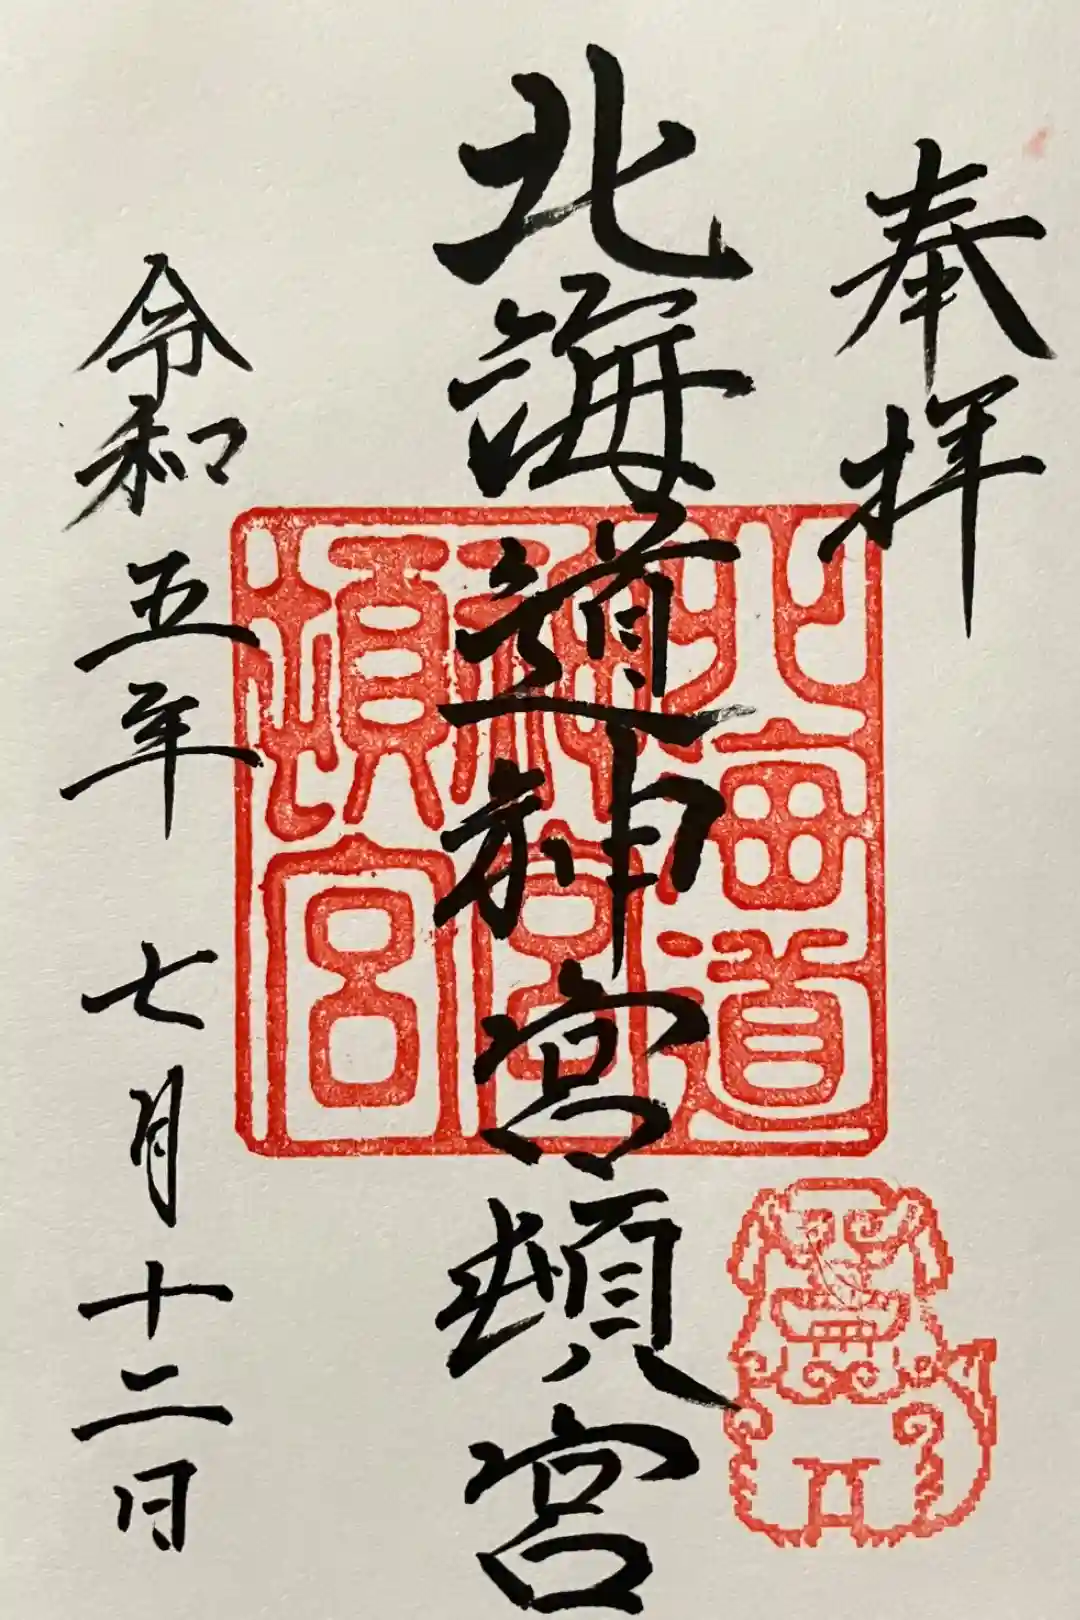 奉拝
北海道神宮頓宮
北海道
神宮
頓宮
令和五年 七月十二日